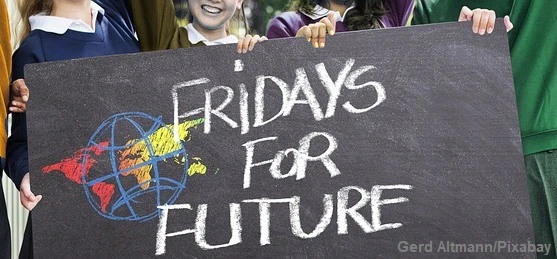 FRIDAYS
FOR
FUTURE
Gerd Altmann/Pixabay